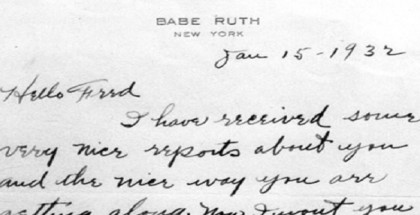 BABE RUTH
NEW YORK
Jan 15 - 1932
Hello Fred
I have received some
very nice reports about you
and the nice way you are
getting along. Now I want you